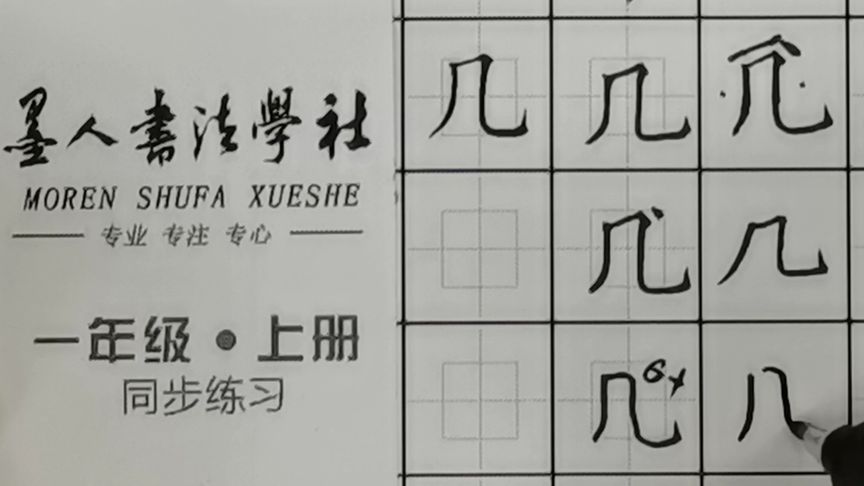 墨人書法學社
MOREN SHUFA XUESHE
专业 专注 专心
一年级·上册
同步练习
几 几 几
几 几
几